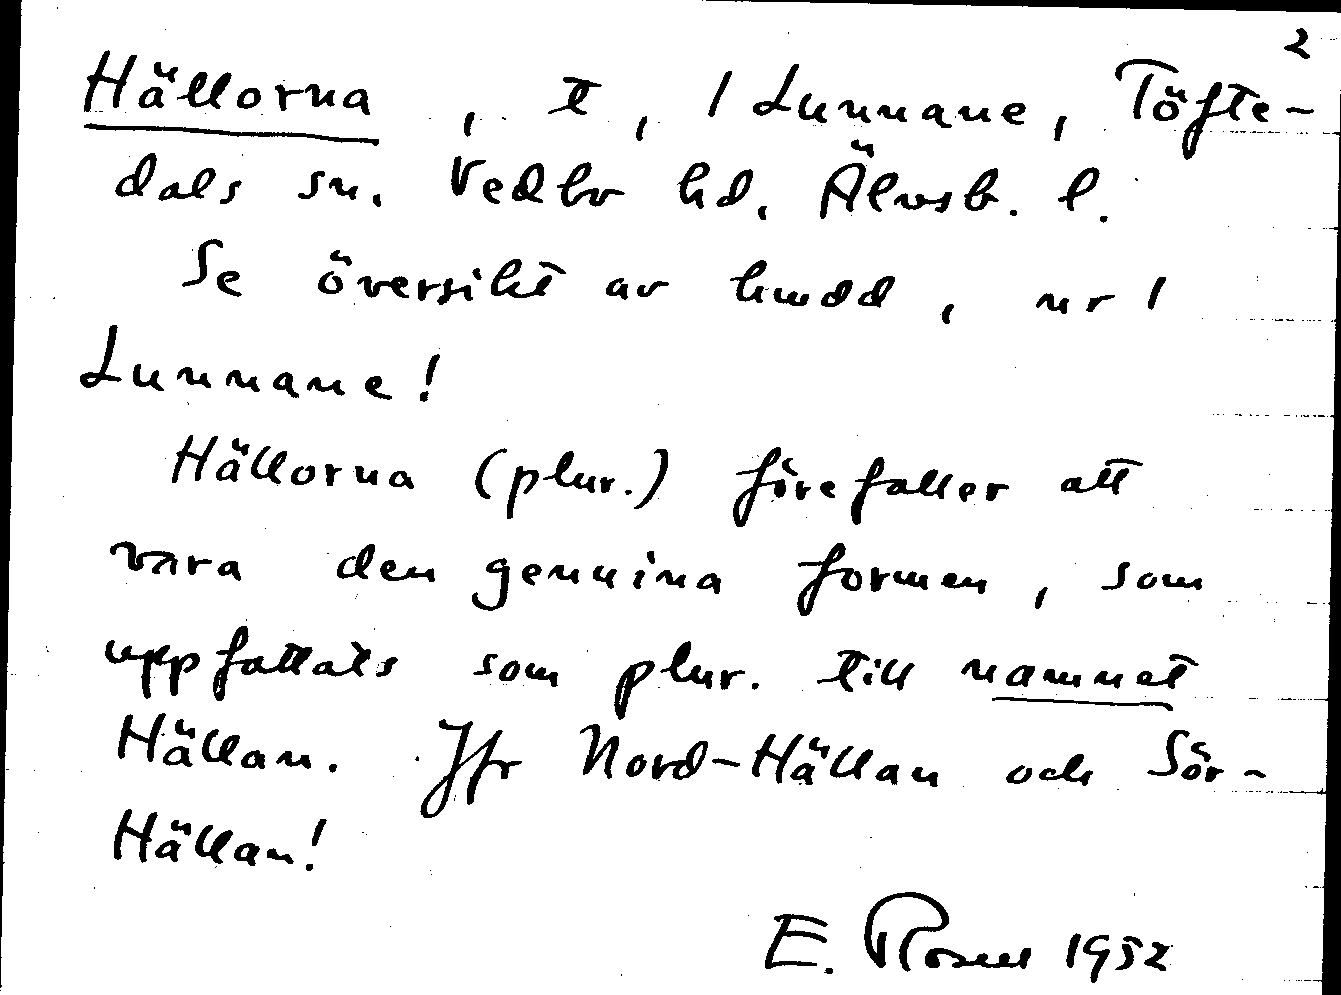 2
Hällorna, t, 1 Lunnane, Töfte-
dals sn. Vedbo hd, Älvsb. l.
Se översikt av hmdd, nr 1
Lunnane!
Hällorna (plur.) förefaller att
vara den genuina formen, som
uppfattats som plur. till namnet
Hällan. Jfr Nord-Hällan och Sör-
Hällan!
E. Rosell 1952